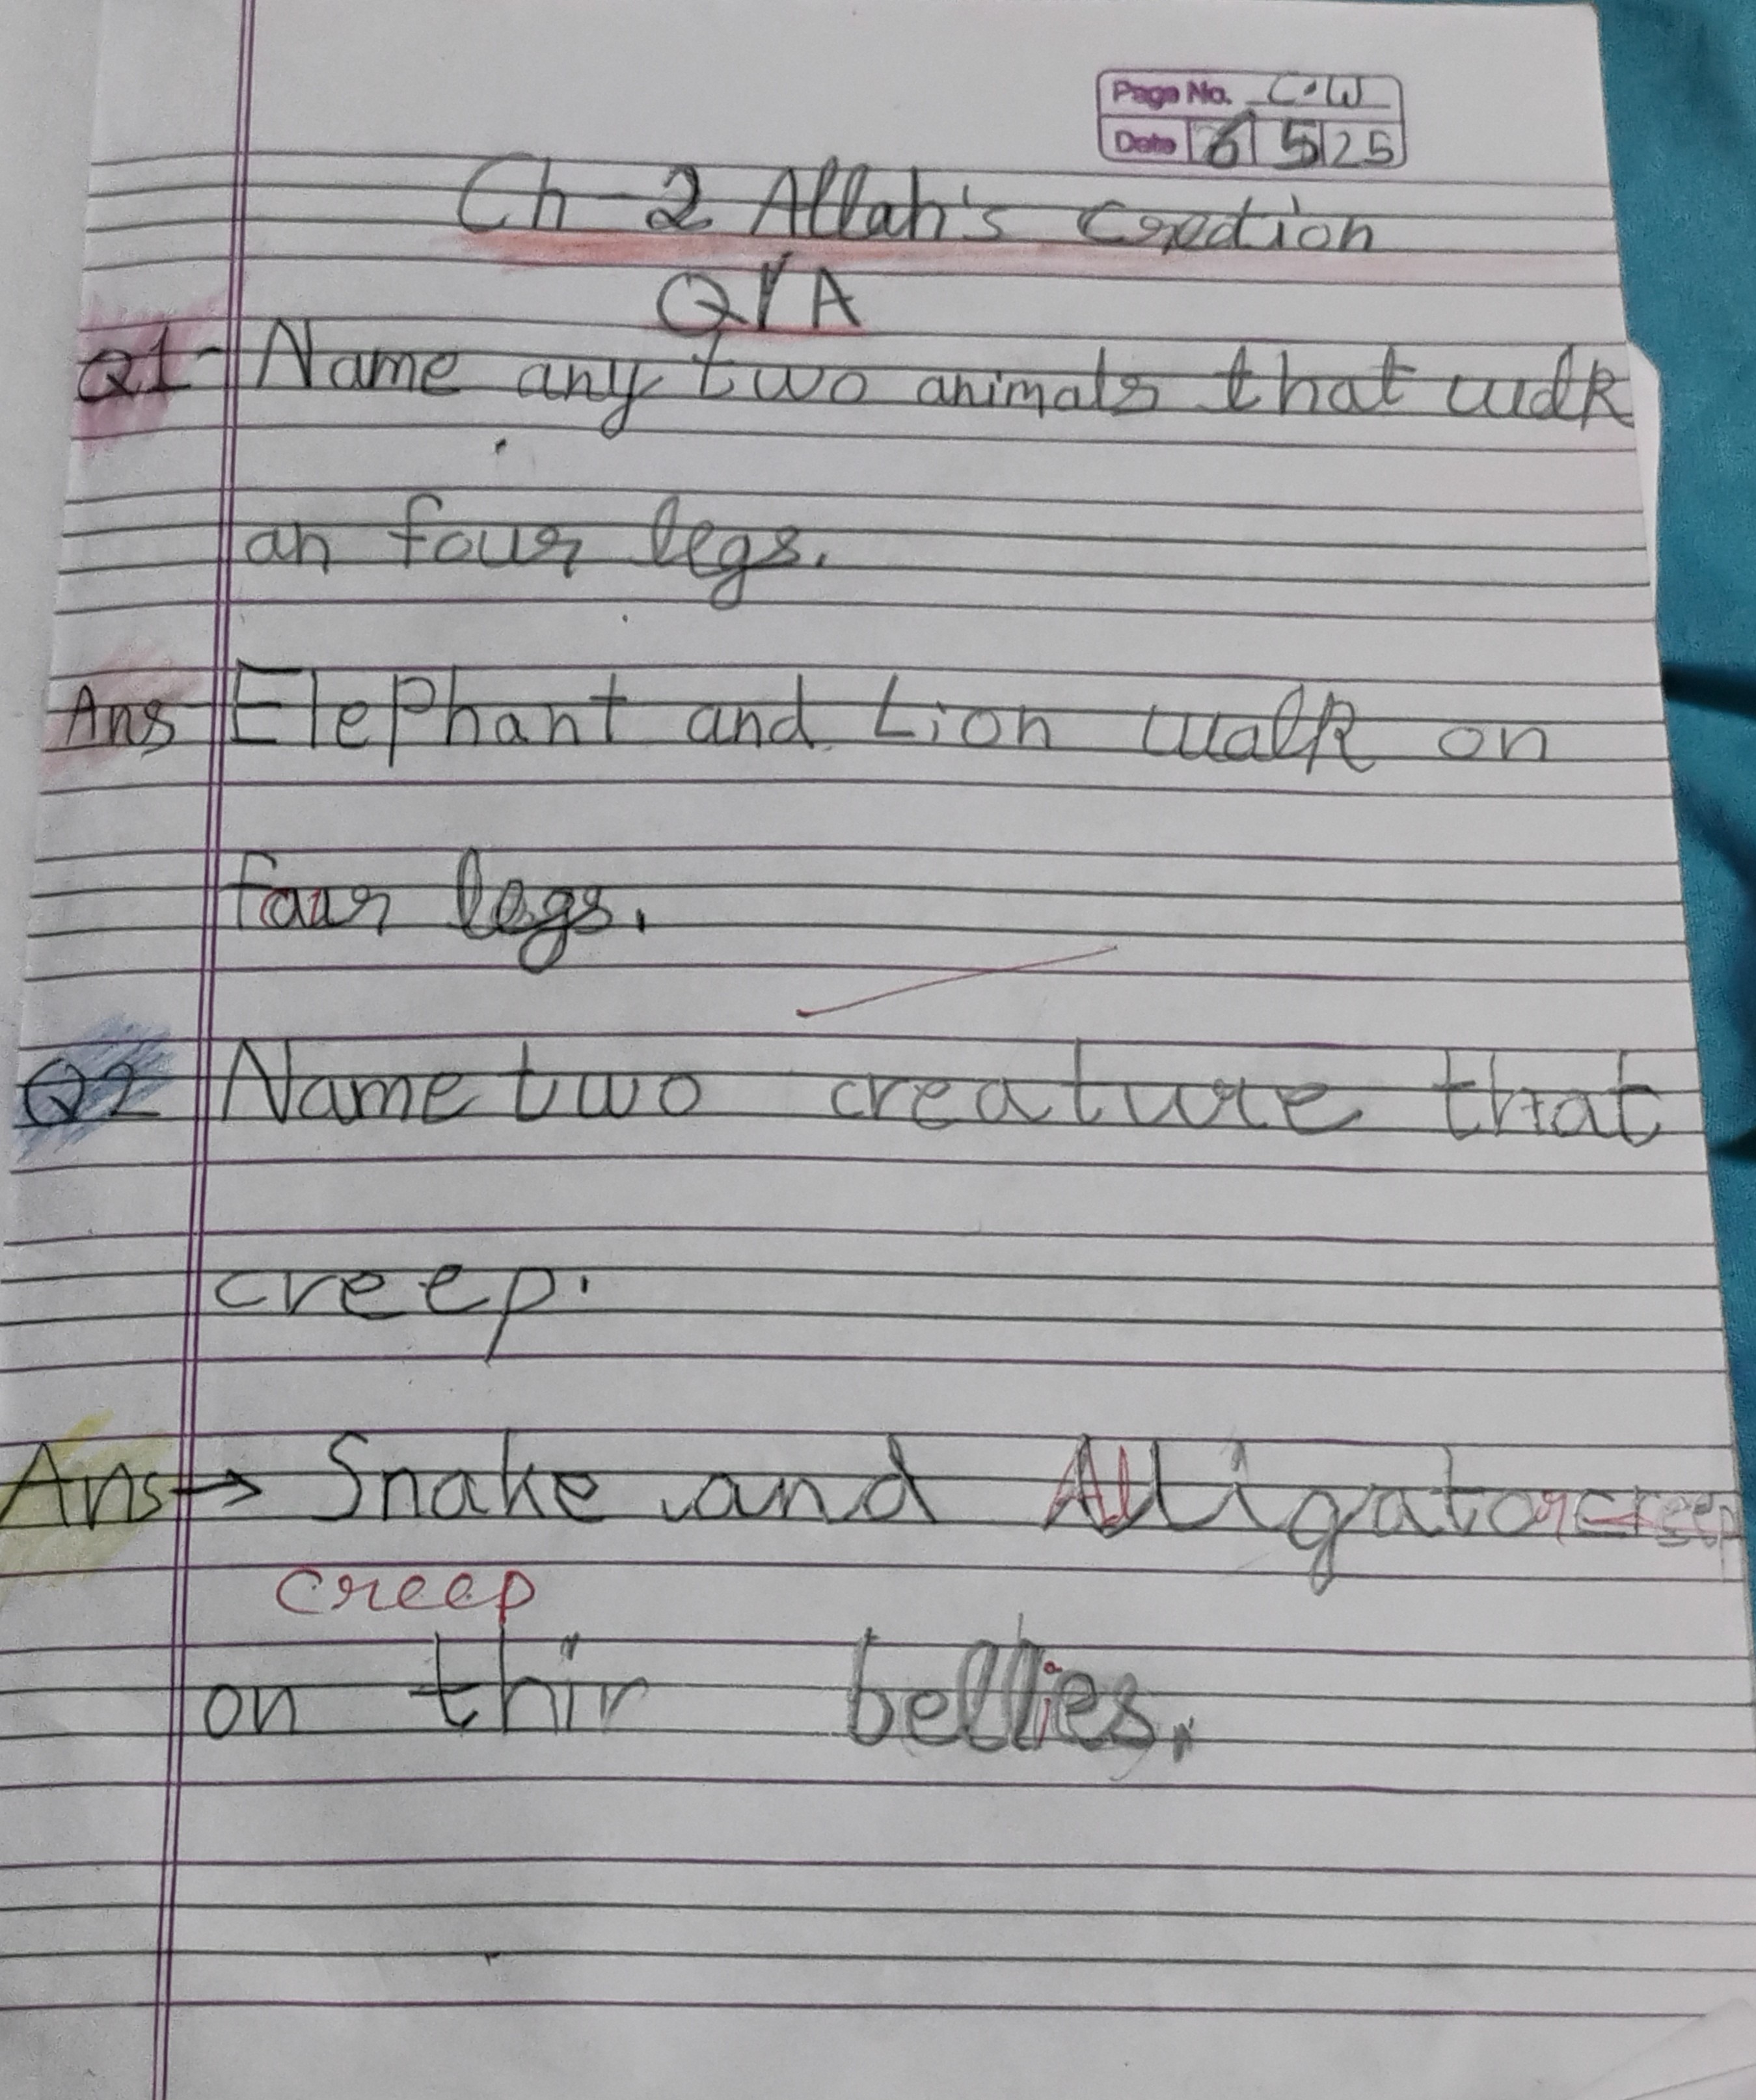 Page No. C.W
Date 6 5 25
Ch-2 Allah's creation
Q/A
Q1- Name any two animals that walk
an four legs.
Ans Elephant and Lion walk on
four legs.
Q2 Name two creature that
creep.
Ans→ Snake and Alligator creep
creep
on thir bellies.